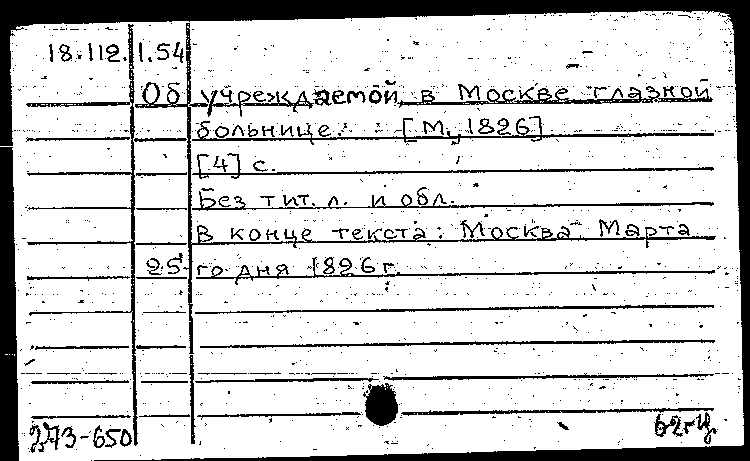 18.112.1.54
Об учреждаемой, в Москве глазной
больнице. [М., 1826]
[4] с.
Без тит. л. и обл.
В конце текста: Москва. Марта
25 го дня 1826 г.
273-650